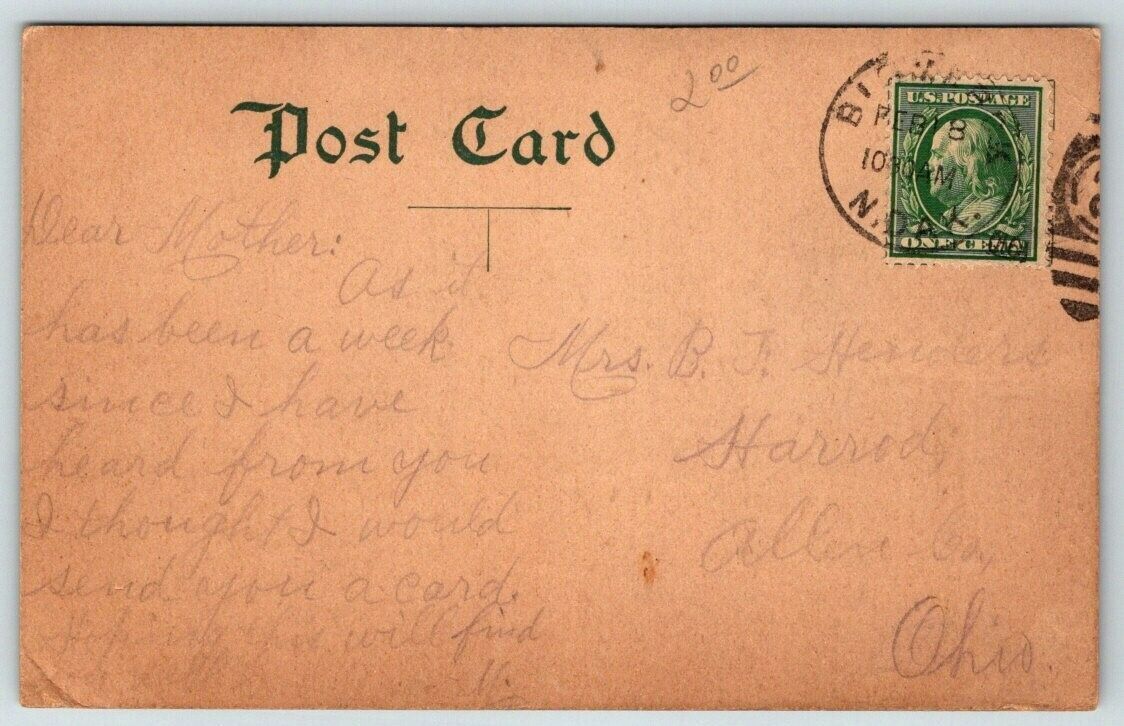 2 00
Post Card
U.S. POSTAGE
FEB 18
10 AM
N. DAK.
ONE CENT
Dear Mother:
As it
has been a week
since I have
heard from you
I thought I would
send you a card.
will find
Mrs. B. F.
Harrod,
Allen Co,
Ohio.